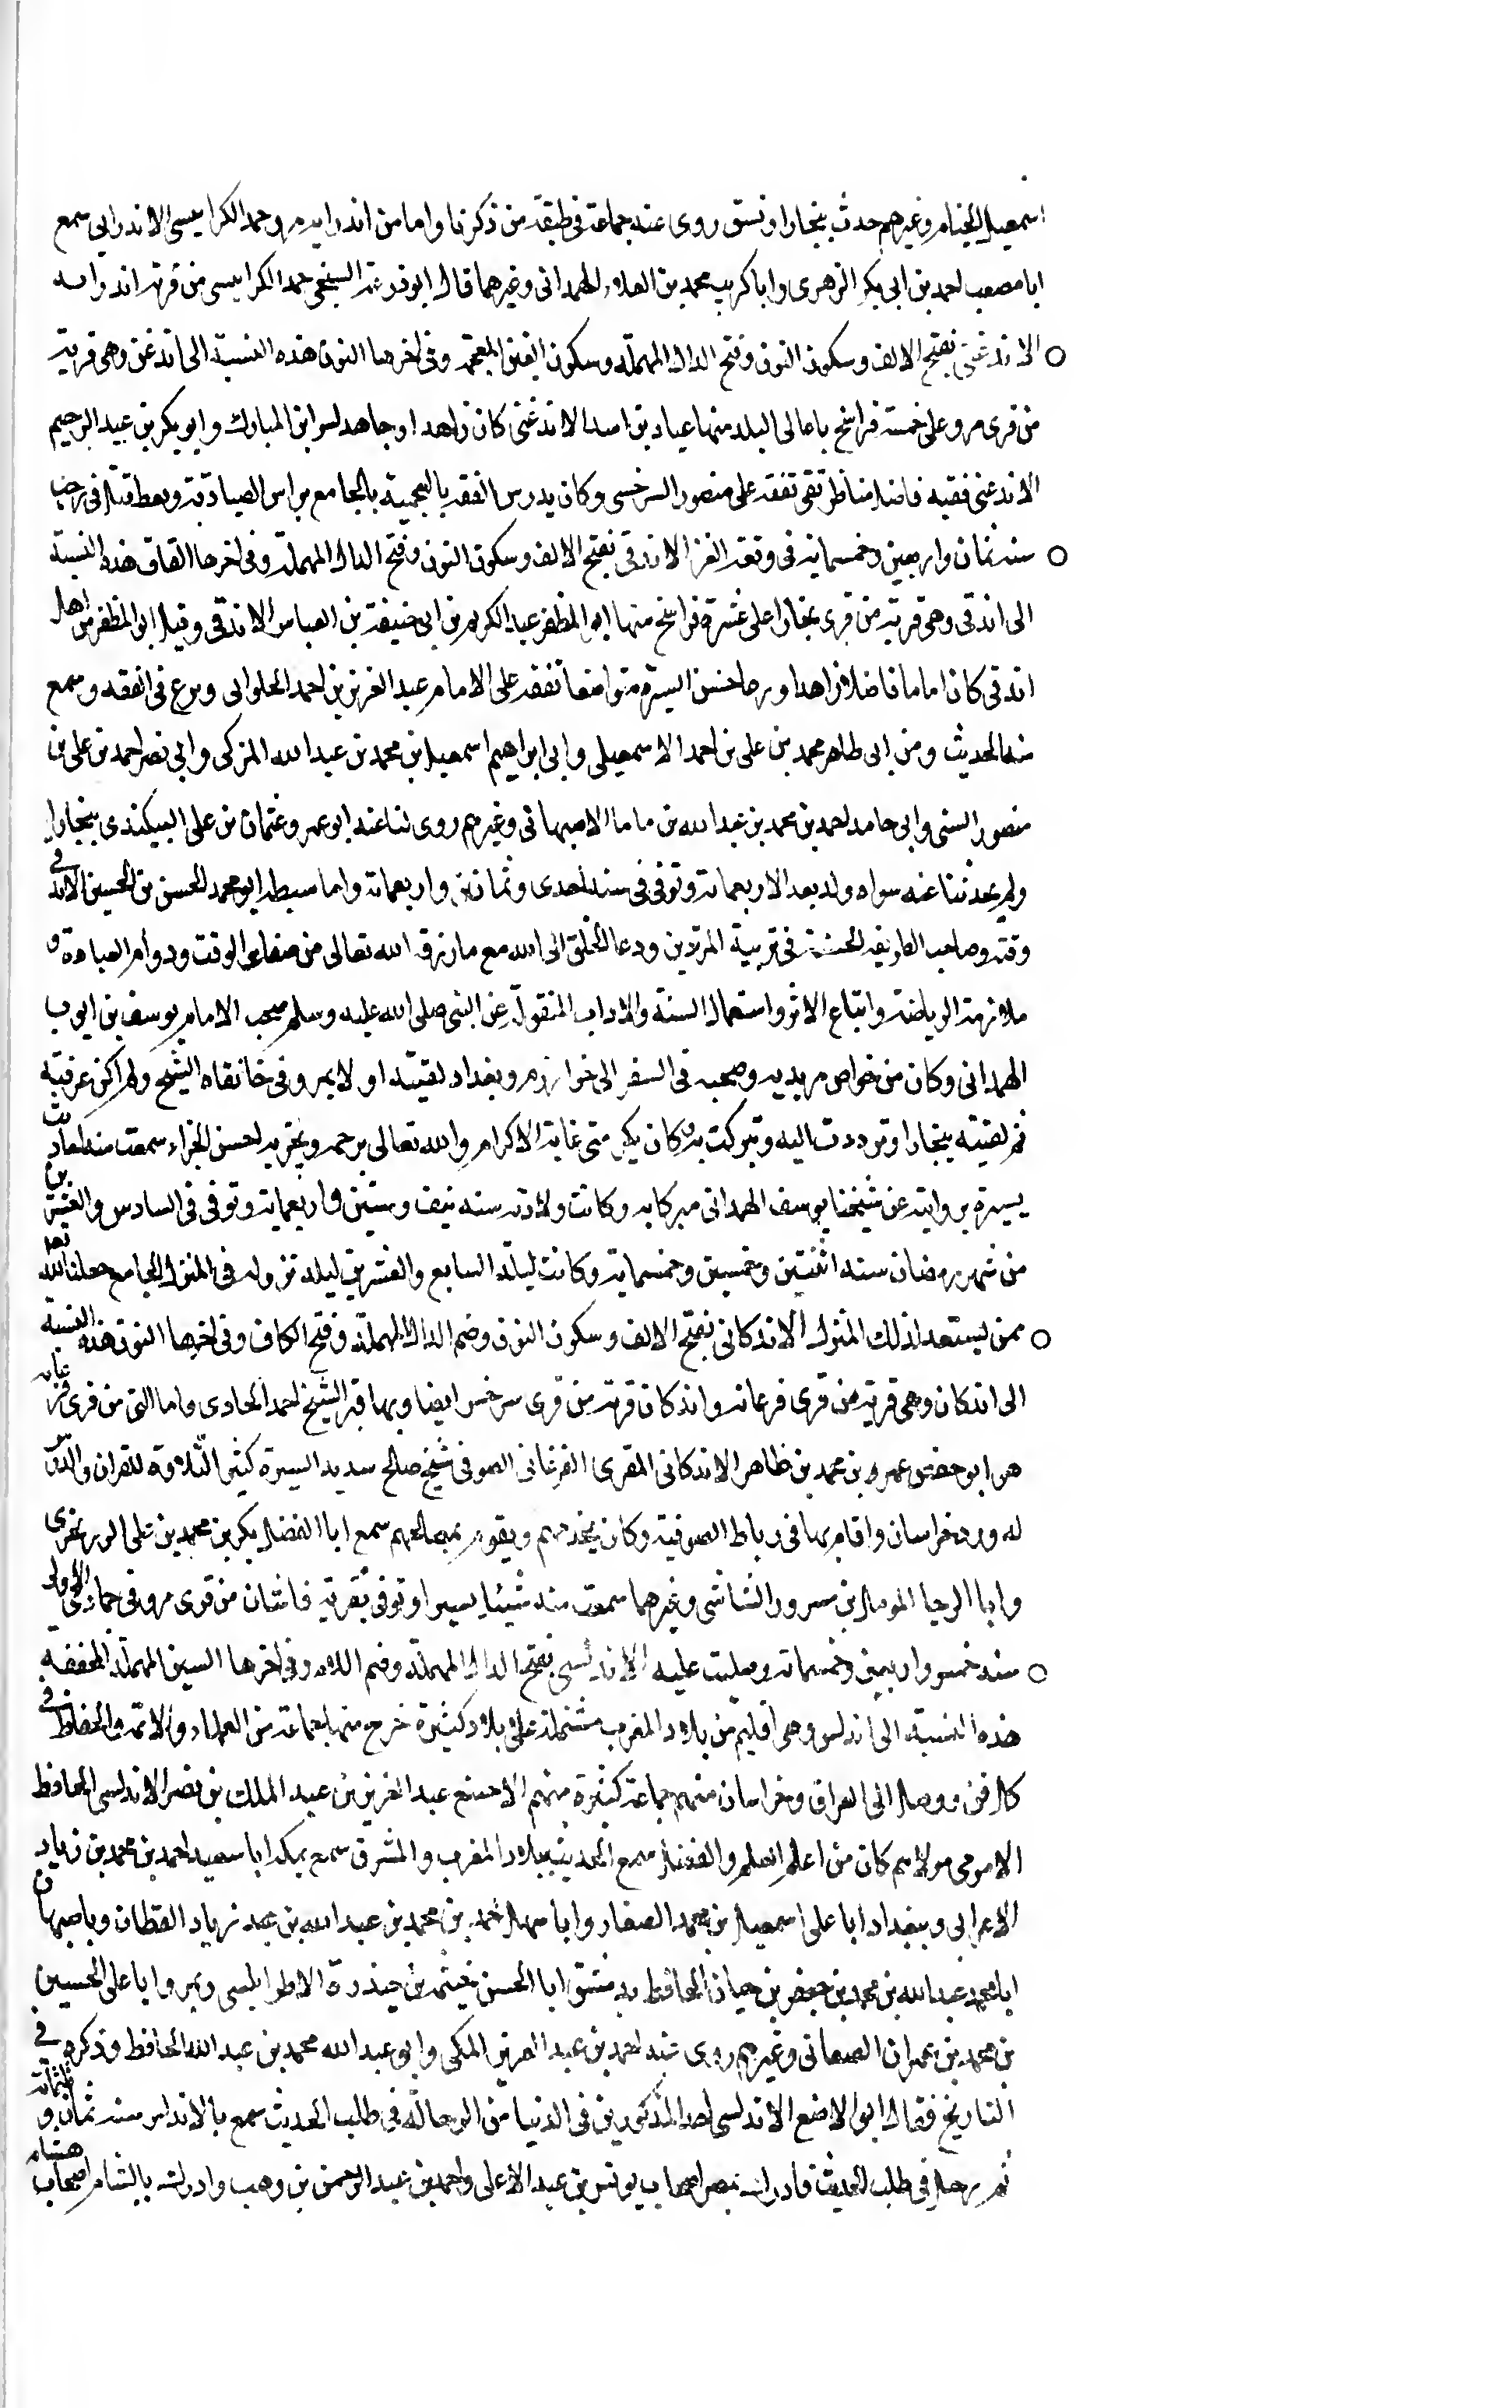 اسمعيل الخيام وغيرهم حدث ببخارا ونسف روى عنه جماعة فى طبقة من ذكرنا واما من اندرابه مرو حمد الكرابيسى الاندرابى سمع
ابا مصعب احمد بن ابى بكر الزهرى وابا كريب محمد بن العلاء الهمدانى وغيرهما قال ابو زرعة السنجى حمد الكرابيسى من قرية اندرابه
○ الاندغنى بفتح الالف وسكون النون وفتح الدال المهملة وسكون الغين المعجمة وفى اخرها النون هذه النسبة الى اندغن وهى قرية
من قرى مرو على خمسة فراسخ باعالى البلد منها عياد بن اسد الاندغنى كان زاهدا وجاهد لسر ابن المبارك وابو بكر بن عبد الرحيم
الاندغنى فقيه فاضل مناظر تقى تفقه على منصور السرخسى وكان يدرس الفقه بالعجمية بالجامع براس الصيادية وبعط قتل فى رجب
○ سنه ثمان واربعين وخمسمايه فى وقعة الغز الاندقى بفتح الالف وسكون النون وفتح الدال المهملة وفى اخرها القاف هذه النسبة
الى اندقى وهى قرية من قرى بخارا على عشرة فراسخ منها ابو المظفر عبد الكريم بن ابى حنيفة بن العباس الاندقى وقيل ابو المظفر من اهل
اندقى كان اماما فاضلا زاهدا ورعا حسن السيرة متواضعا تفقه على الامام عبد العزيز بن احمد الحلوانى وبرع فى الفقه وسمع
منه الحديث ومن ابى طاهر محمد بن على بن احمد الاسمعيلى وابى ابراهيم اسمعيل بن محمد بن عبد الله المزكى وابى نصر احمد بن على بن
منصور السنى وابى حامد احمد بن محمد بن عبد الله بن ماما الاصبهانى وغيرهم روى لنا عنه ابو عمرو عثمان بن على البيكندى ببخارا
ولم يحدثنا عنه سواه ولد بعد الاربعماية وتوفى فى سنه احدى وثمانين واربعماية واما سبطه ابو محمد الحسن بن الحسين الاندقى
وقته وصاحب الطريقه الحسنة فى تربية المريدين ودعا الخلق الى الله مع مارزقه الله تعالى من صفاء الوقت ودوام العبادة و
ملازمة الرياضة واتباع الاثر واستعمال السنة والاداب المنقولة عن النبى صلى الله عليه وسلم صحب الامام يوسف بن ايوب
الهمدانى وكان من خواص مريديه وصحبه فى السفر الى خوارزم وبغداد لقيته اولا بمرو فى خانقاه الشيخ ولم اكن عرفته
ثم لقيته ببخارا وترددت اليه وتبركت به وكان يكرمنى غاية الاكرام والله تعالى يرحمه ويجزيه احسن الجزاء سمعت منه احاديث
يسيرة بروايته عن شيخنا يوسف الهمدانى ميركا به وكانت ولادته سنه نيف وستين واربعمايه وتوفى فى السادس والعشرين
من شهر رمضان سنه اثنتين وخمسين وخمسمايه وكانت ليلة السابع والعشرين ليلة نزوله فى المنزل الجامع جعلنا الله تعالى
○ ممن يستعد لذلك المنزل الاندكانى بفتح الالف وسكون النون وضم الدال المهملة وفتح الكاف وفى اخرها النون هذه النسبة
الى اندكان وهى قرية من قرى فرغانه واندكان قرية من قرى سرخس ايضا وبها قبر الشيخ احمد الحادى واما التى من قرى فرغانه
هو ابو حفص عمر بن محمد بن طاهر الاندكانى المقرى الفرغانى الصوفى شيخ صالح سديد السيرة كثير التلاوة للقران والدؤب
له ورد خراسان واقام بها فى رباط الصوفية وكان يخدمهم ويقوم بمصالحهم سمع ابا الفضل بكر بن محمد بن على الزرنجرى
وابا الرجا المومل بن مسرور الشاشى وغيرهما سمعت منه شيئا يسيرا وتوفى بقرية فاشان من قرى مرو فى جمادى الاولى
○ سنه خمس واربعين وخمسمايه وصليت عليه الاندلسى بفتح الدال المهملة وضم اللام وفى اخرها السين المهملة المخففة
هذه النسبة الى اندلس وهى اقليم من بلاد المغرب مشتملة على بلاد كثيرة خرج منها جماعة من العلماء والائمة والحفاظ فى
كل فن ووصل الى العراق وخراسان منهم جماعة كثيرة منهم الاصبغ عبد العزيز بن عبد الملك بن نصر الاندلسى الحافظ
الاموى مولاهم كان من اعلم العلم والفضل سمع الحديث ببلاد المغرب والمشرق سمع بمكه ابا سعيد احمد بن محمد بن زياد
الاعرابى وببغداد ابا على اسمعيل بن محمد الصفار وابا سهل احمد بن محمد بن عبد الله بن زياد القطان وباصبهان
ابا محمد عبد الله بن محمد بن جعفر بن حيان الحافظ وبدمشق ابا الحسن خيثمة بن حيدرة الاطرابلسى وبمرو ابا على الحسين
بن محمد بن عمران الصغانى وغيرهم روى عنه احمد بن عبد العزيز المكى وابو عبد الله محمد بن عبد الله الحافظ وذكره فى
التاريخ فقال ابو الاصبغ الاندلسى احد المذكورين فى الدنيا من الرحالة فى طلب الحديث سمع بالاندلس سنه ثمان وثلثماية
ثم رحل فى طلب الحديث فادرك بمصر اصحاب يونس بن عبد الاعلى واحمد بن عبد الرحمن بن وهب وادرك بالشام اصحاب هشام